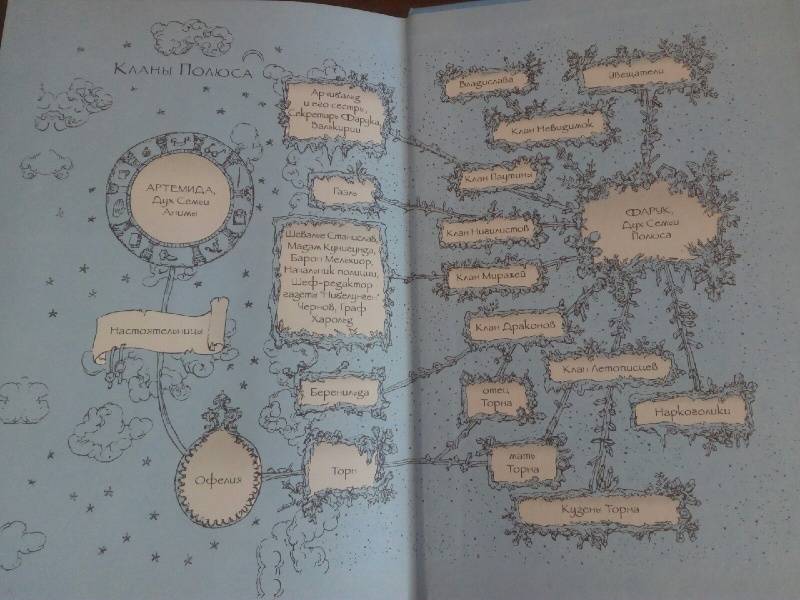 Кланы Полюса
АРТЕМИДА,
Дух Семьи
Анимы
Настоятельницы
Офелия
Арчибальд
и его сестры,
Секретарь Фарука,
Валькирии
Гаэль
Шевалье Станислав,
Мадам Кунигунда,
Барон Мельхиор,
Начальник полиции,
Шеф-редактор
газеты "Нибелунген"
Чернов, Граф
Харольд
Беренильда
Торн
Владислава
Клан Невидимок
Клан Паутины
Клан Нигилистов
Клан Миражей
Клан Драконов
отец
Торна
мать
Торна
Клан Летописцев
Кузены Торна
Увещатели
ФАРУК,
Дух Семьи
Полюса
Наркоголики